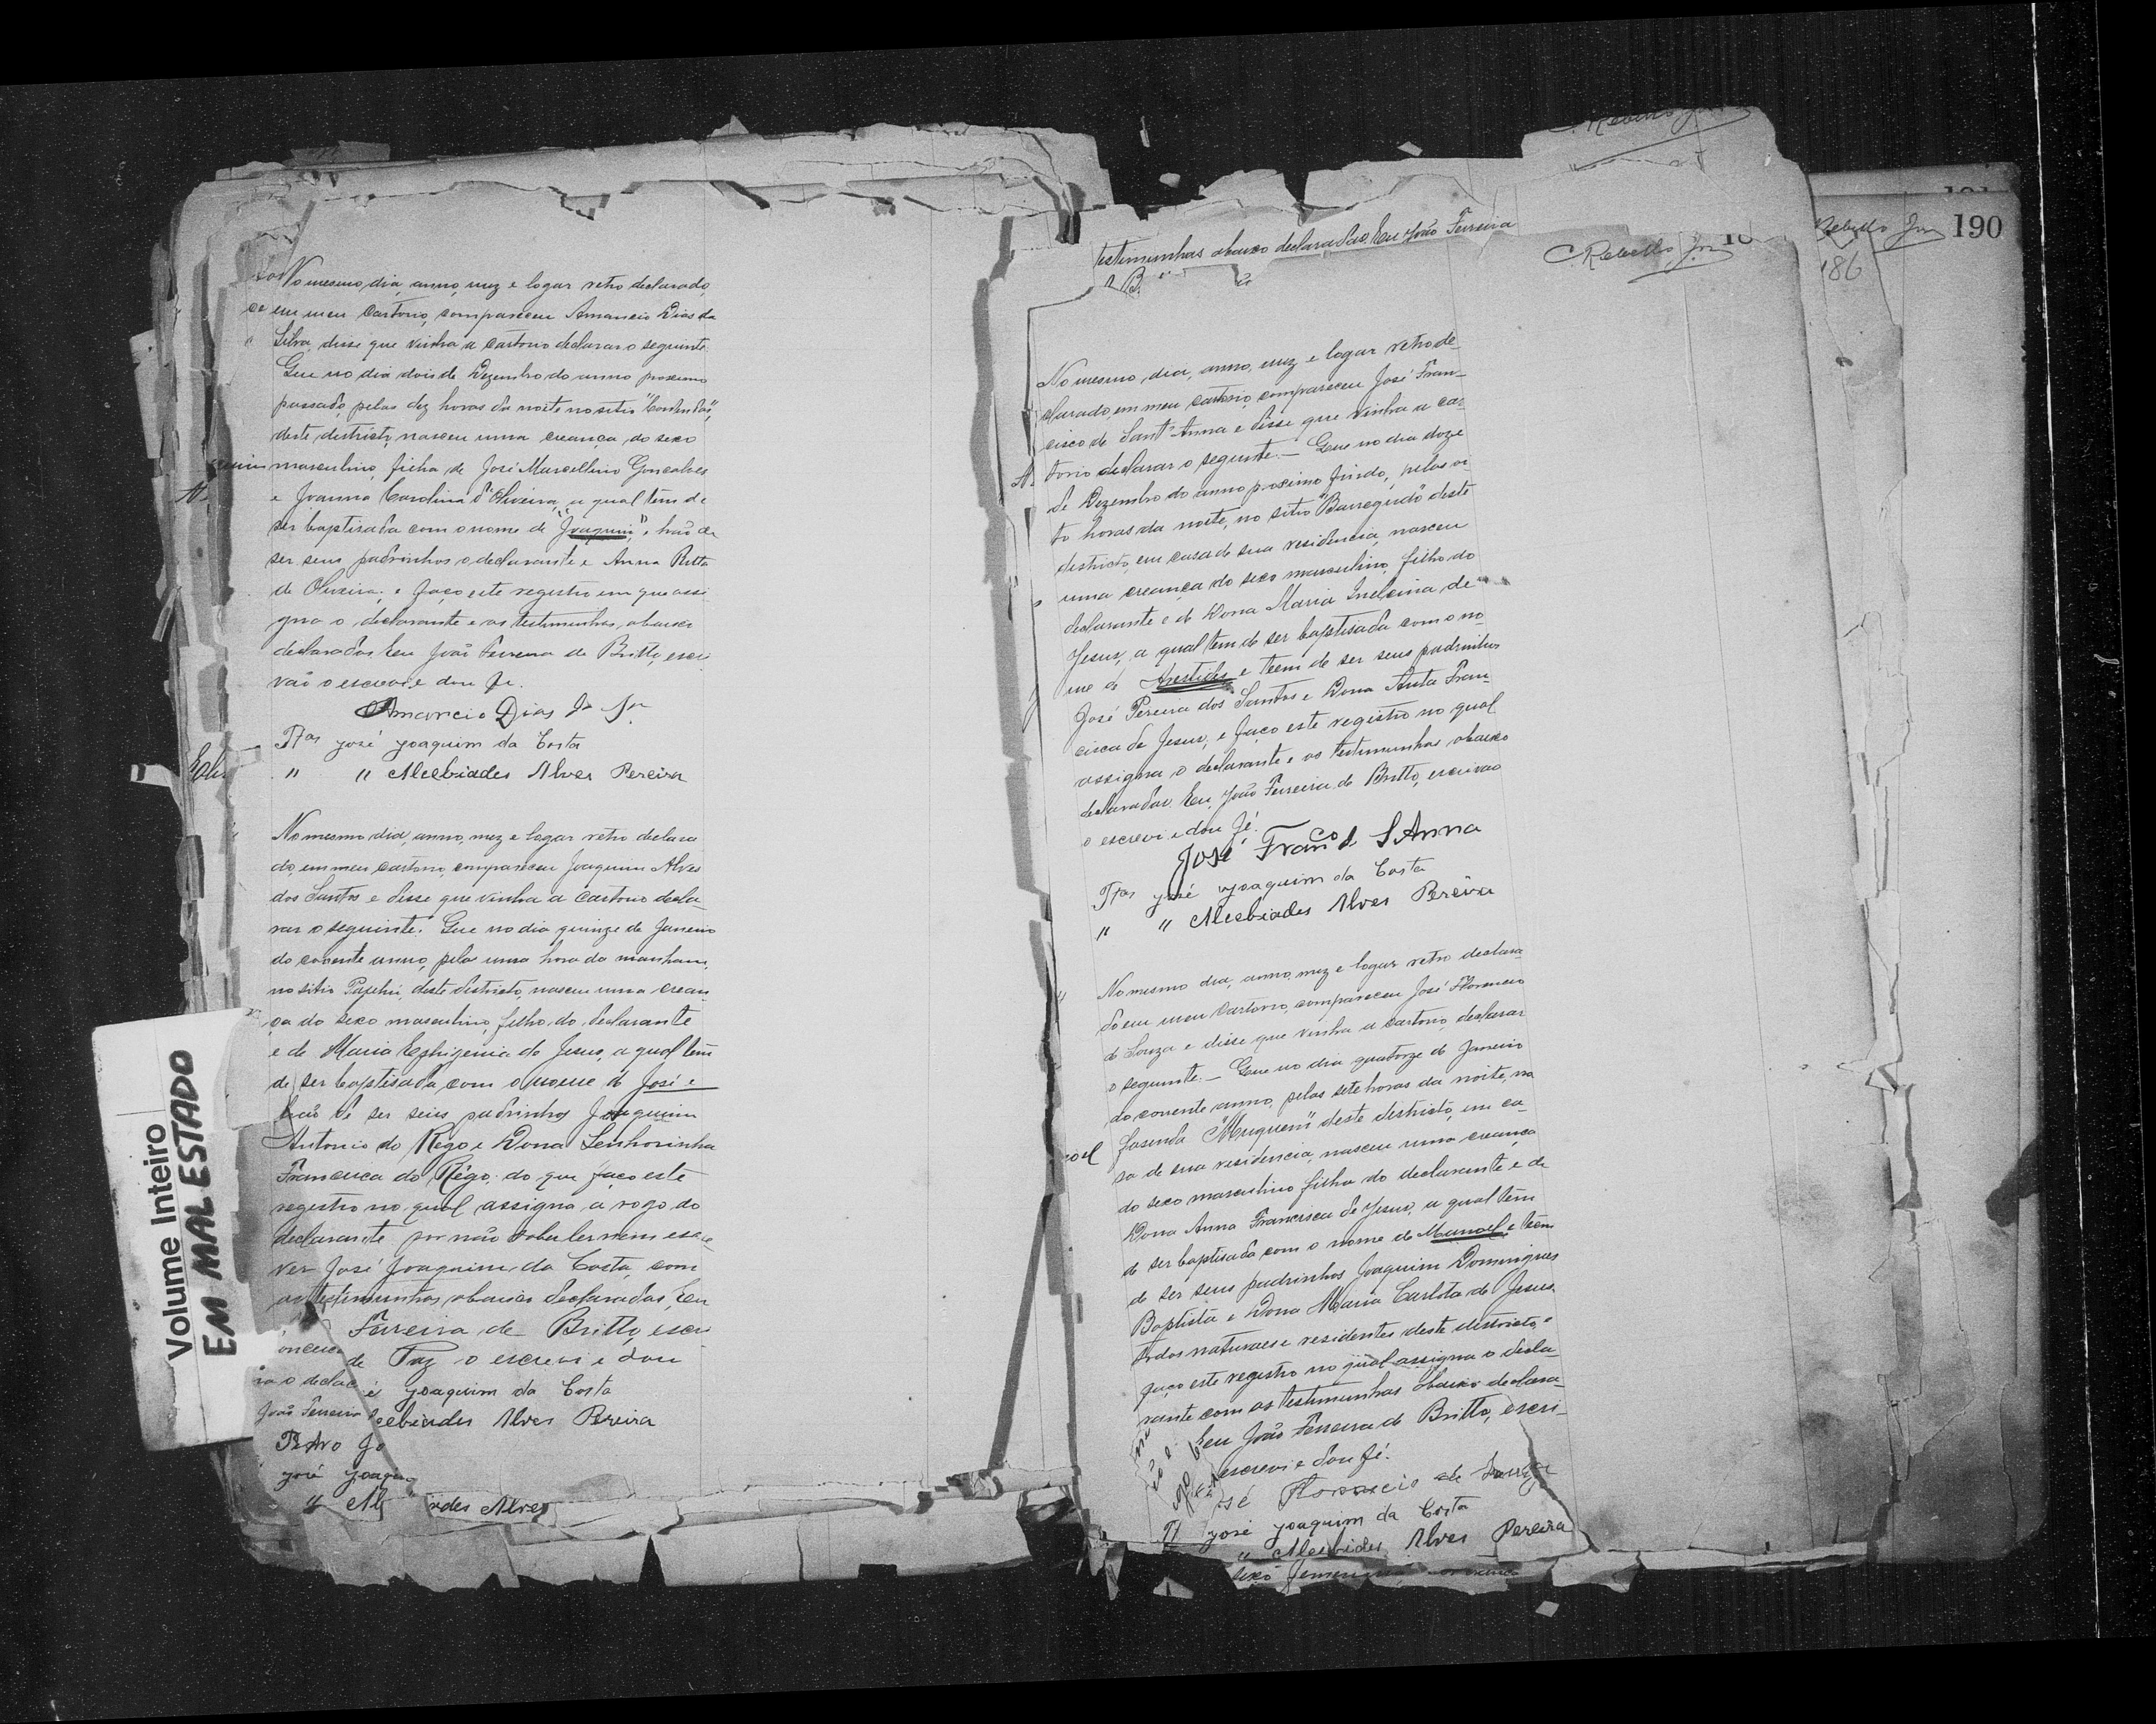 No mesmo dia, anno, mez e logar retro declarado,
em meu cartorio, compareceu Amancio Dias da
Silva, disse que vinha a cartorio declarar o seguinte.
Que no dia dois de Dezembro do anno proximo
passado, pelas dez horas da noite no sitio
deste districto, nasceu uma creança do sexo
masculino, filha de José Marcellino Gonçalves
e Joanna Carolina d'Oliveira, a qual tem de
ser baptisada com o nome de "Joaquim", hão de
ser seus padrinhos o declarante e Anna Ritta
de Oliveira; e faço este registro em que assi
gna o declarante e as testimunhas, abaixo
declaradas. Eu João Ferreira de Britto, escri
vão o escrevi e dou fé.
Amancio Dias da
Ttas José Joaquim da Costa
" " Alcebiades Alves Pereira
No mesmo dia, anno, mez e logar retro declara
do, em meu cartorio, compareceu Joaquim Alves
dos Santos e disse que vinha a cartorio decla-
rar o seguinte: Que no dia quinze de Janeiro
do corrente anno, pela uma hora da manham,
no sitio deste districto, nasceu uma crean
ça do sexo masculino, filho do declarante
e de Maria Ephigenia de Jesus, a qual tem
de ser baptisada com o nome de José e
hão de ser seus padrinhos Joaquim
Antonio do Rego e Dona Senhorinha
Francisca do Rêgo, do que faço este
registro no qual assigna a rogo do
declarante por não saber ler nem escre
ver José Joaquim da Costa, com
as testimunhas abaixo declaradas, Eu
Ferreira de Britto, escri
de Paz o escrevi e dou
Joaquim da Costa
cebiades Alves Pereira
João Ferreira
José Joaquim
ades Alves
Volume Inteiro
EM MAL ESTADO
testimunhas abaixo declaradas. Eu João Ferreira
C Rebello Jor
Rebello Jor
190
186
No mesmo, dia, anno, mez e logar retro de-
clarado, em meu cartorio, compareceu José Fran-
cisco de Sant'Anna e disse que vinha a car
torio declarar o seguinte. — Que no dia doze
de Dezembro do anno proximo findo, pelas oi-
to horas da noite, no sitio deste
districto, em casa de sua residencia, nasceu
uma creança do sexo masculino, filho do
declarante e de Dona Maria de
Jesus, a qual tem de ser baptisada com o no-
me de Arestides e teem de ser seus padrinhos
José Pereira dos Santos e Dona Anta Fran-
cisca de Jesus, e faço este registro no qual
assigna o declarante e as testimunhas abaixo
declaradas. Eu, João Ferreira de Britto, escrivão
o escrevi e dou fé.
José Franco d SAnna
Ttas José Joaquim da Costa
" " Alcebiades Alves Pereira
No mesmo dia, anno, mez e logar retro declara
do em meu cartorio, compareceu José Florencio
de Souza e disse que vinha a cartorio, declarar
o seguinte. — Que no dia quatorze de Janeiro
do corrente anno, pelas sete horas da noite, na
fasenda "Muquem" deste districto, em ca-
sa de sua residencia, nasceu uma creança
do sexo masculino filho do declarante e de
Dona Anna Francisca de Jesus, a qual tem
de ser baptisada com o nome de Manoel, e teem
de ser seus padrinhos Joaquim Domingues
Baptista e Dona Maria Carlota de Jesus,
todos naturaes e residentes deste districto, e
faço este registro no qual assigna o decla-
rante com as testimunhas abaixo declara-
Eu João Ferreira de Britto, escri-
escrevi e dou fé.
sé Florencio de Souza
Tt José Joaquim da Costa
" Alcebiades Alves Pereira
sexo